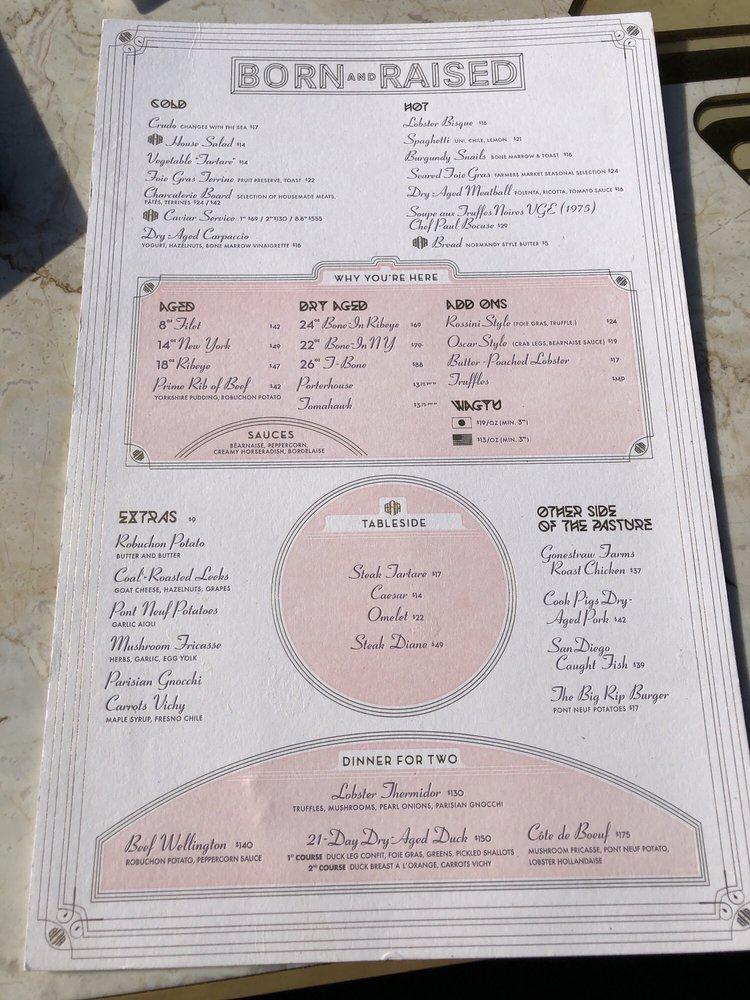 BORN AND RAISED
COLD
Crudo CHANGES WITH THE SEA $17
House Salad $14
Vegetable "Tartare" $14
Foie Gras Terrine FRUIT PRESERVE, TOAST $22
Charcuterie Board SELECTION OF HOUSEMADE MEATS,
PÂTÉS, TERRINES $24 / $42
Caviar Service 1oz $69 / 2oz $130 / 8.8oz $555
Dry-Aged Carpaccio
YOGURT, HAZELNUTS, BONE MARROW VINAIGRETTE $16
HOT
Lobster Bisque $16
Spaghetti UNI, CHILE, LEMON $21
Burgundy Snails BONE MARROW & TOAST $16
Seared Foie Gras FARMERS MARKET SEASONAL SELECTION $24
Dry-Aged Meatball POLENTA, RICOTTA, TOMATO SAUCE $16
Soupe aux Truffes Noires VGE (1975)
Chef Paul Bocuse $29
Bread NORMANDY STYLE BUTTER $5
WHY YOU'RE HERE
AGED
8oz Filet $42
14oz New York $49
18oz Ribeye $47
Prime Rib of Beef $42
YORKSHIRE PUDDING, ROBUCHON POTATO
SAUCES
BÉARNAISE, PEPPERCORN,
CREAMY HORSERADISH, BORDELAISE
DRY AGED
24oz Bone In Ribeye $69
22oz Bone In NY $79
26oz T-Bone $88
Porterhouse $3.75
Tomahawk $3.75
ADD ONS
Rossini Style (FOIE GRAS, TRUFFLE,) $24
Oscar Style (CRAB LEGS, BEARNAISE SAUCE) $19
Butter-Poached Lobster $17
Truffles $MP
WAGYU
$19/OZ (MIN. 3oz)
$13/OZ (MIN. 3oz)
EXTRAS $9
Robuchon Potato
BUTTER AND BUTTER
Coal-Roasted Leeks
GOAT CHEESE, HAZELNUTS, GRAPES
Pont Neuf Potatoes
GARLIC AIOLI
Mushroom Fricasse
HERBS, GARLIC, EGG YOLK
Parisian Gnocchi
Carrots Vichy
MAPLE SYRUP, FRESNO CHILE
TABLESIDE
Steak Tartare $17
Caesar $14
Omelet $22
Steak Diane $49
OTHER SIDE
OF THE PASTURE
Gonestraw Farms
Roast Chicken $37
Cook Pigs Dry-
Aged Pork $42
San Diego
Caught Fish $39
The Big Rip Burger
PONT NEUF POTATOES $17
DINNER FOR TWO
Lobster Thermidor $130
TRUFFLES, MUSHROOMS, PEARL ONIONS, PARISIAN GNOCCHI
Beef Wellington $140
ROBUCHON POTATO, PEPPERCORN SAUCE
21-Day Dry-Aged Duck $150
1ST COURSE DUCK LEG CONFIT, FOIE GRAS, GREENS, PICKLED SHALLOTS
2ND COURSE DUCK BREAST A L'ORANGE, CARROTS VICHY
Côte de Boeuf $175
MUSHROOM FRICASSE, PONT NEUF POTATO,
LOBSTER HOLLANDAISE